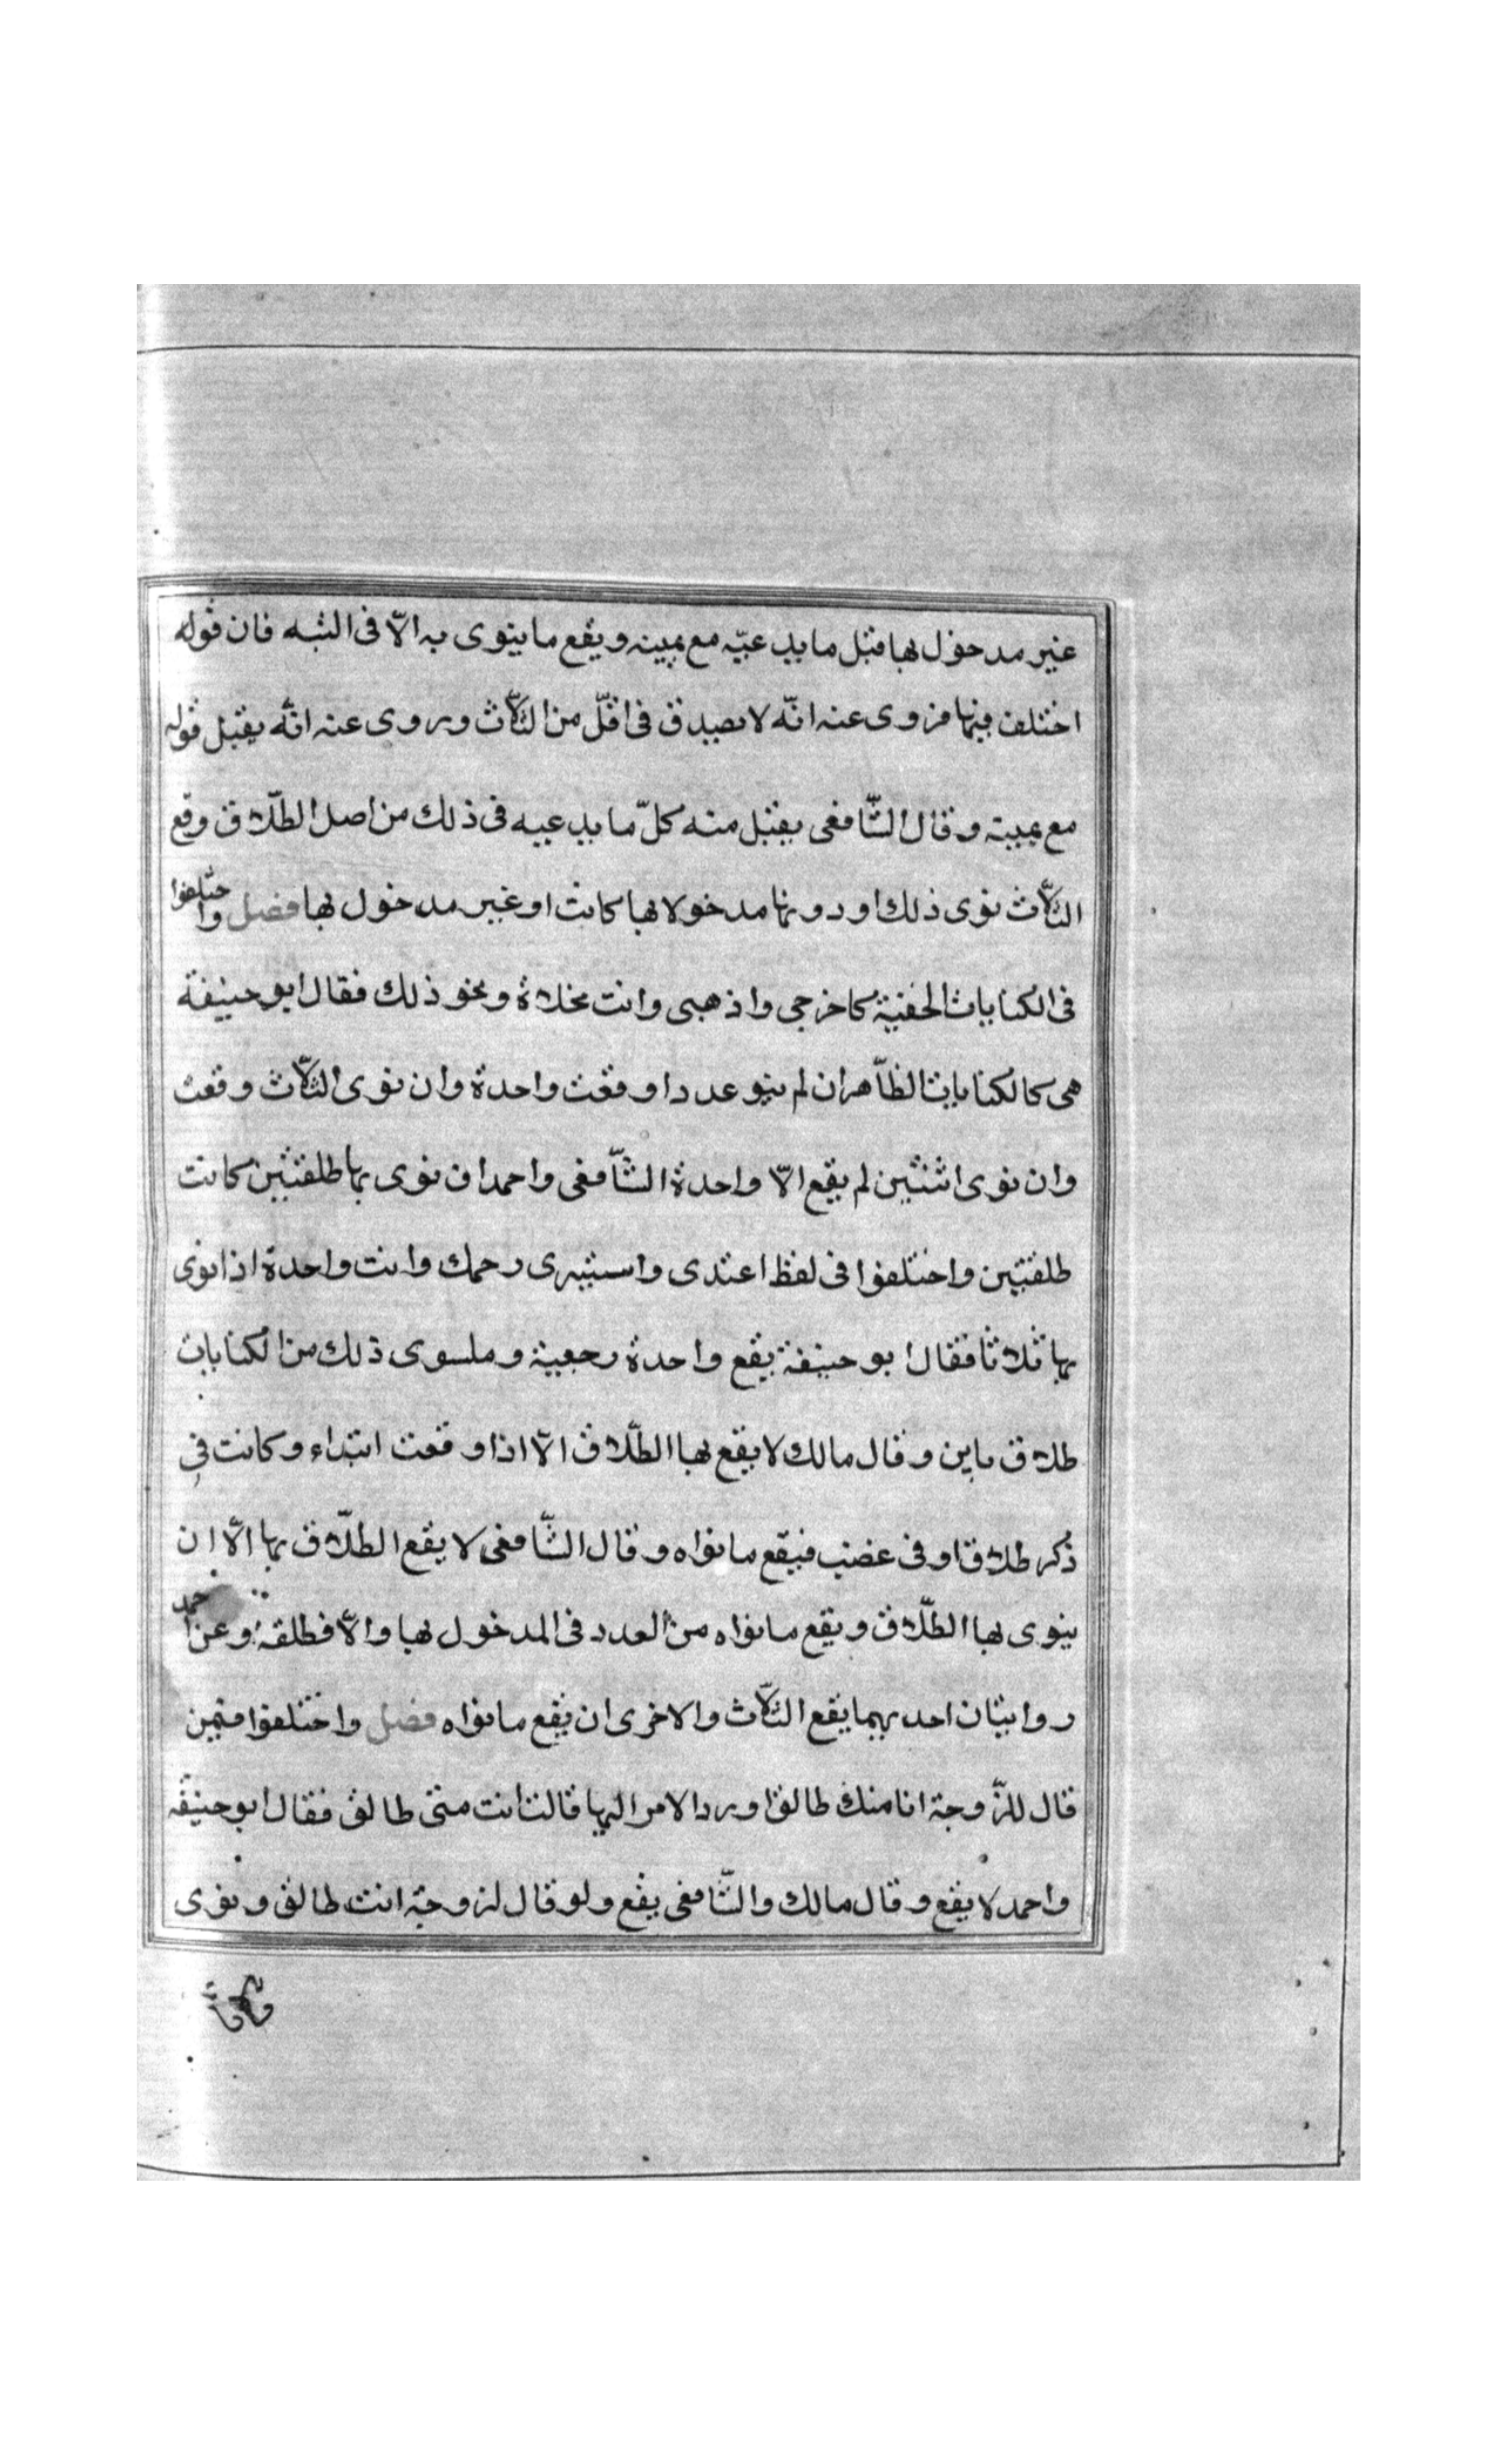 غير مدخول بها قبل ما يدعيّه مع يمينه ويقع ما ينوى به الّا فى البته فان قوله
اختلف فيها فروى عنه انّه لا يصدق فى اقلّ من الثلّاث وروى عنه انّه يقبل قوله
مع يمينه وقال الشّافعى يقبل منه كلّ ما يدعيه فى ذلك من اصل الطلّاق وقع
الثلّاث نوى ذلك او دونها مدخولا بها كانت او غير مدخول بها فصل واختلفوا
فى الكنايات الخفيّة كاخرجى واذهبى وانت مخلاة ونحو ذلك فقال ابو حنيفة
هى كالكنايات الظّاهر ان لم ينو عددا وقعت واحدة وان نوى الثلّاث وقعت
وان نوى اثنتين لم يقع الّا واحدة الشّافعى واحمد ان نوى بها طلقتين كانت
طلقتين واختلفوا فى لفظ اعتدى واستبرى رحمك وانت واحدة اذا نوى
بها ثلاثا فقال ابو حنيفة يقع واحدة رجعية وملسوى ذلك من الكنايات
طلاق باين وقال مالك لا يقع بها الطلّاق الّا اذا وقعت ابتداء وكانت فى
ذكر طلاق او فى غضب فيقع ما نواه وقال الشّافعى لا يقع الطلّاق بها الّا ان
ينوى بها الطلّاق ويقع ما نواه من العدد فى المدخول بها والّا فطلقة وعن احمد
روايتان احديهما يقع الثلّاث والاخرى ان يقع ما نواه فصل واختلفوا فيمن
قال للزّوجة انا منك طالق او رد الامر اليها قالت انت منّى طالق فقال ابو حنيفه
واحمد لا يقع وقال مالك والشّافعى يقع ولو قال لزوجته انت طالق ونوى